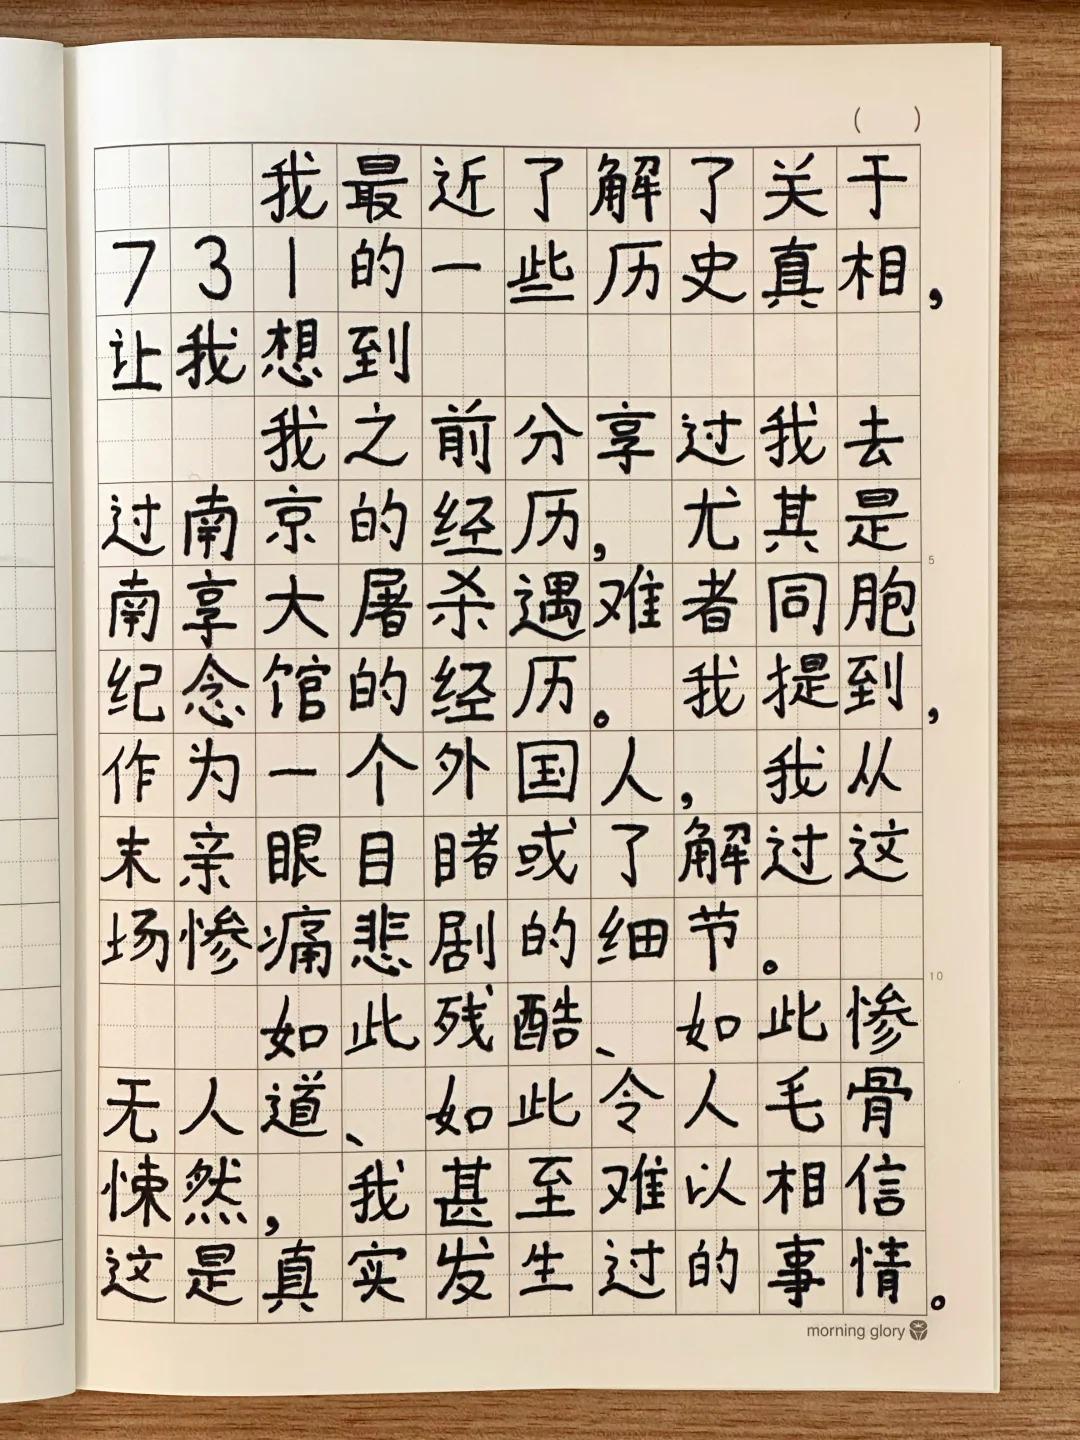 ( )
我最近了解了关于
731的一些历史真相，
让我想到
我之前分享过我去
过南京的经历，尤其是
南享大屠杀遇难者同胞
纪念馆的经历。我提到，
作为一个外国人，我从
末亲眼目睹或了解过这
场惨痛悲剧的细节。
如此残酷、如此惨
无人道、如此令人毛骨
悚然，我甚至难以相信
这是真实发生过的事情。
5
10
morning glory